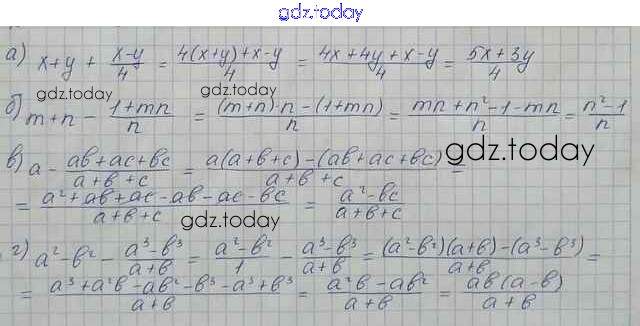 gdz.today
а) x+y + \frac{x-y}{4} = \frac{4(x+y)+x-y}{4} = \frac{4x+4y+x-y}{4} = \frac{5x+3y}{4}
gdz.today
б) m+n - \frac{1+mn}{n} = \frac{(m+n)·n-(1+mn)}{n} = \frac{mn+n²-1-mn}{n} = \frac{n²-1}{n}
gdz.today
в) a - \frac{ab+ac+bc}{a+b+c} = \frac{a(a+b+c)-(ab+ac+bc)}{a+b+c} =
gdz.today
= \frac{a²+ab+ac-ab-ac-bc}{a+b+c} = \frac{a²-bc}{a+b+c}
gdz.today
г) a²-b² - \frac{a³-b³}{a+b} = \frac{a²-b²}{1} - \frac{a³-b³}{a+b} = \frac{(a²-b²)(a+b)-(a³-b³)}{a+b} =
= \frac{a³+a²b-ab²-b³-a³+b³}{a+b} = \frac{a²b-ab²}{a+b} = \frac{ab(a-b)}{a+b}